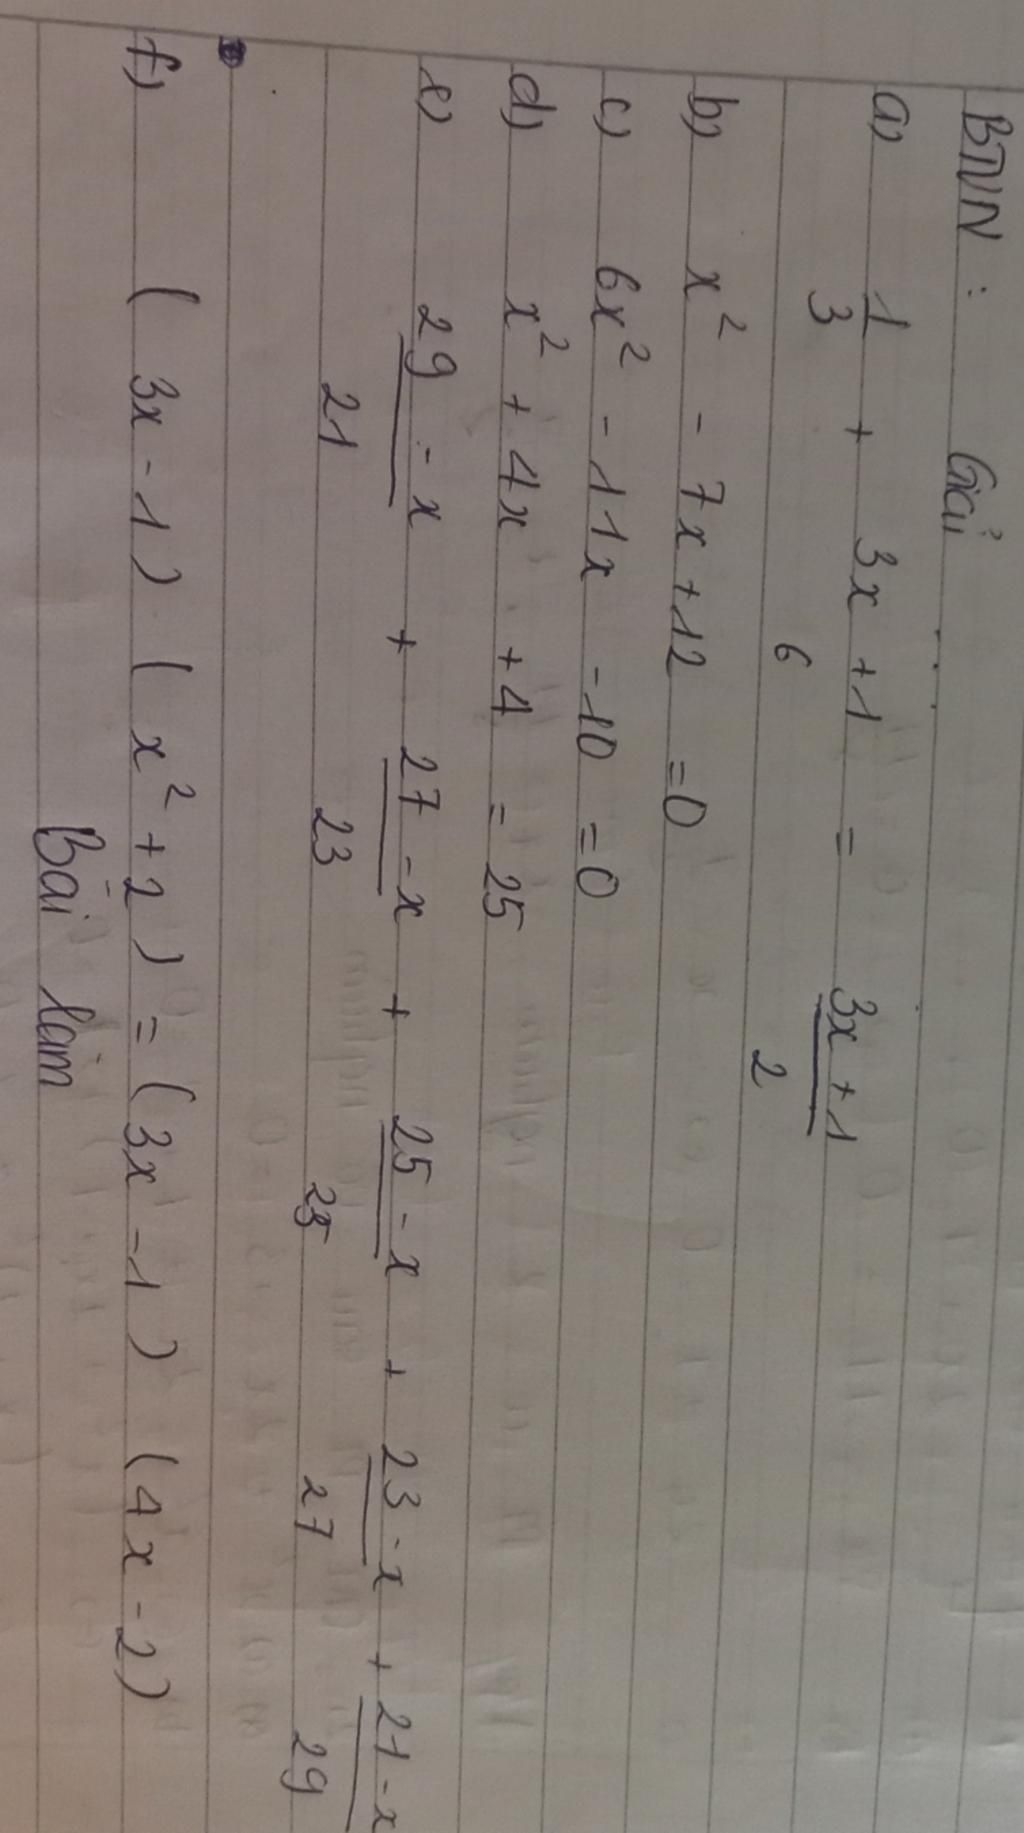 BTVN : Giải
a) 1/3 + 3x + 1/6 = 3x + 1/2
b) x² - 7x + 12 = 0
c) 6x² - 11x - 10 = 0
d) x² + 4x + 4 = 25
e) 29 - x/21 + 27 - x/23 + 25 - x/25 + 23 - x/27 + 21 - x/29
f) ( 3x - 1 ) ( x² + 2 ) = ( 3x - 1 ) ( 4x - 2 )
Bài làm